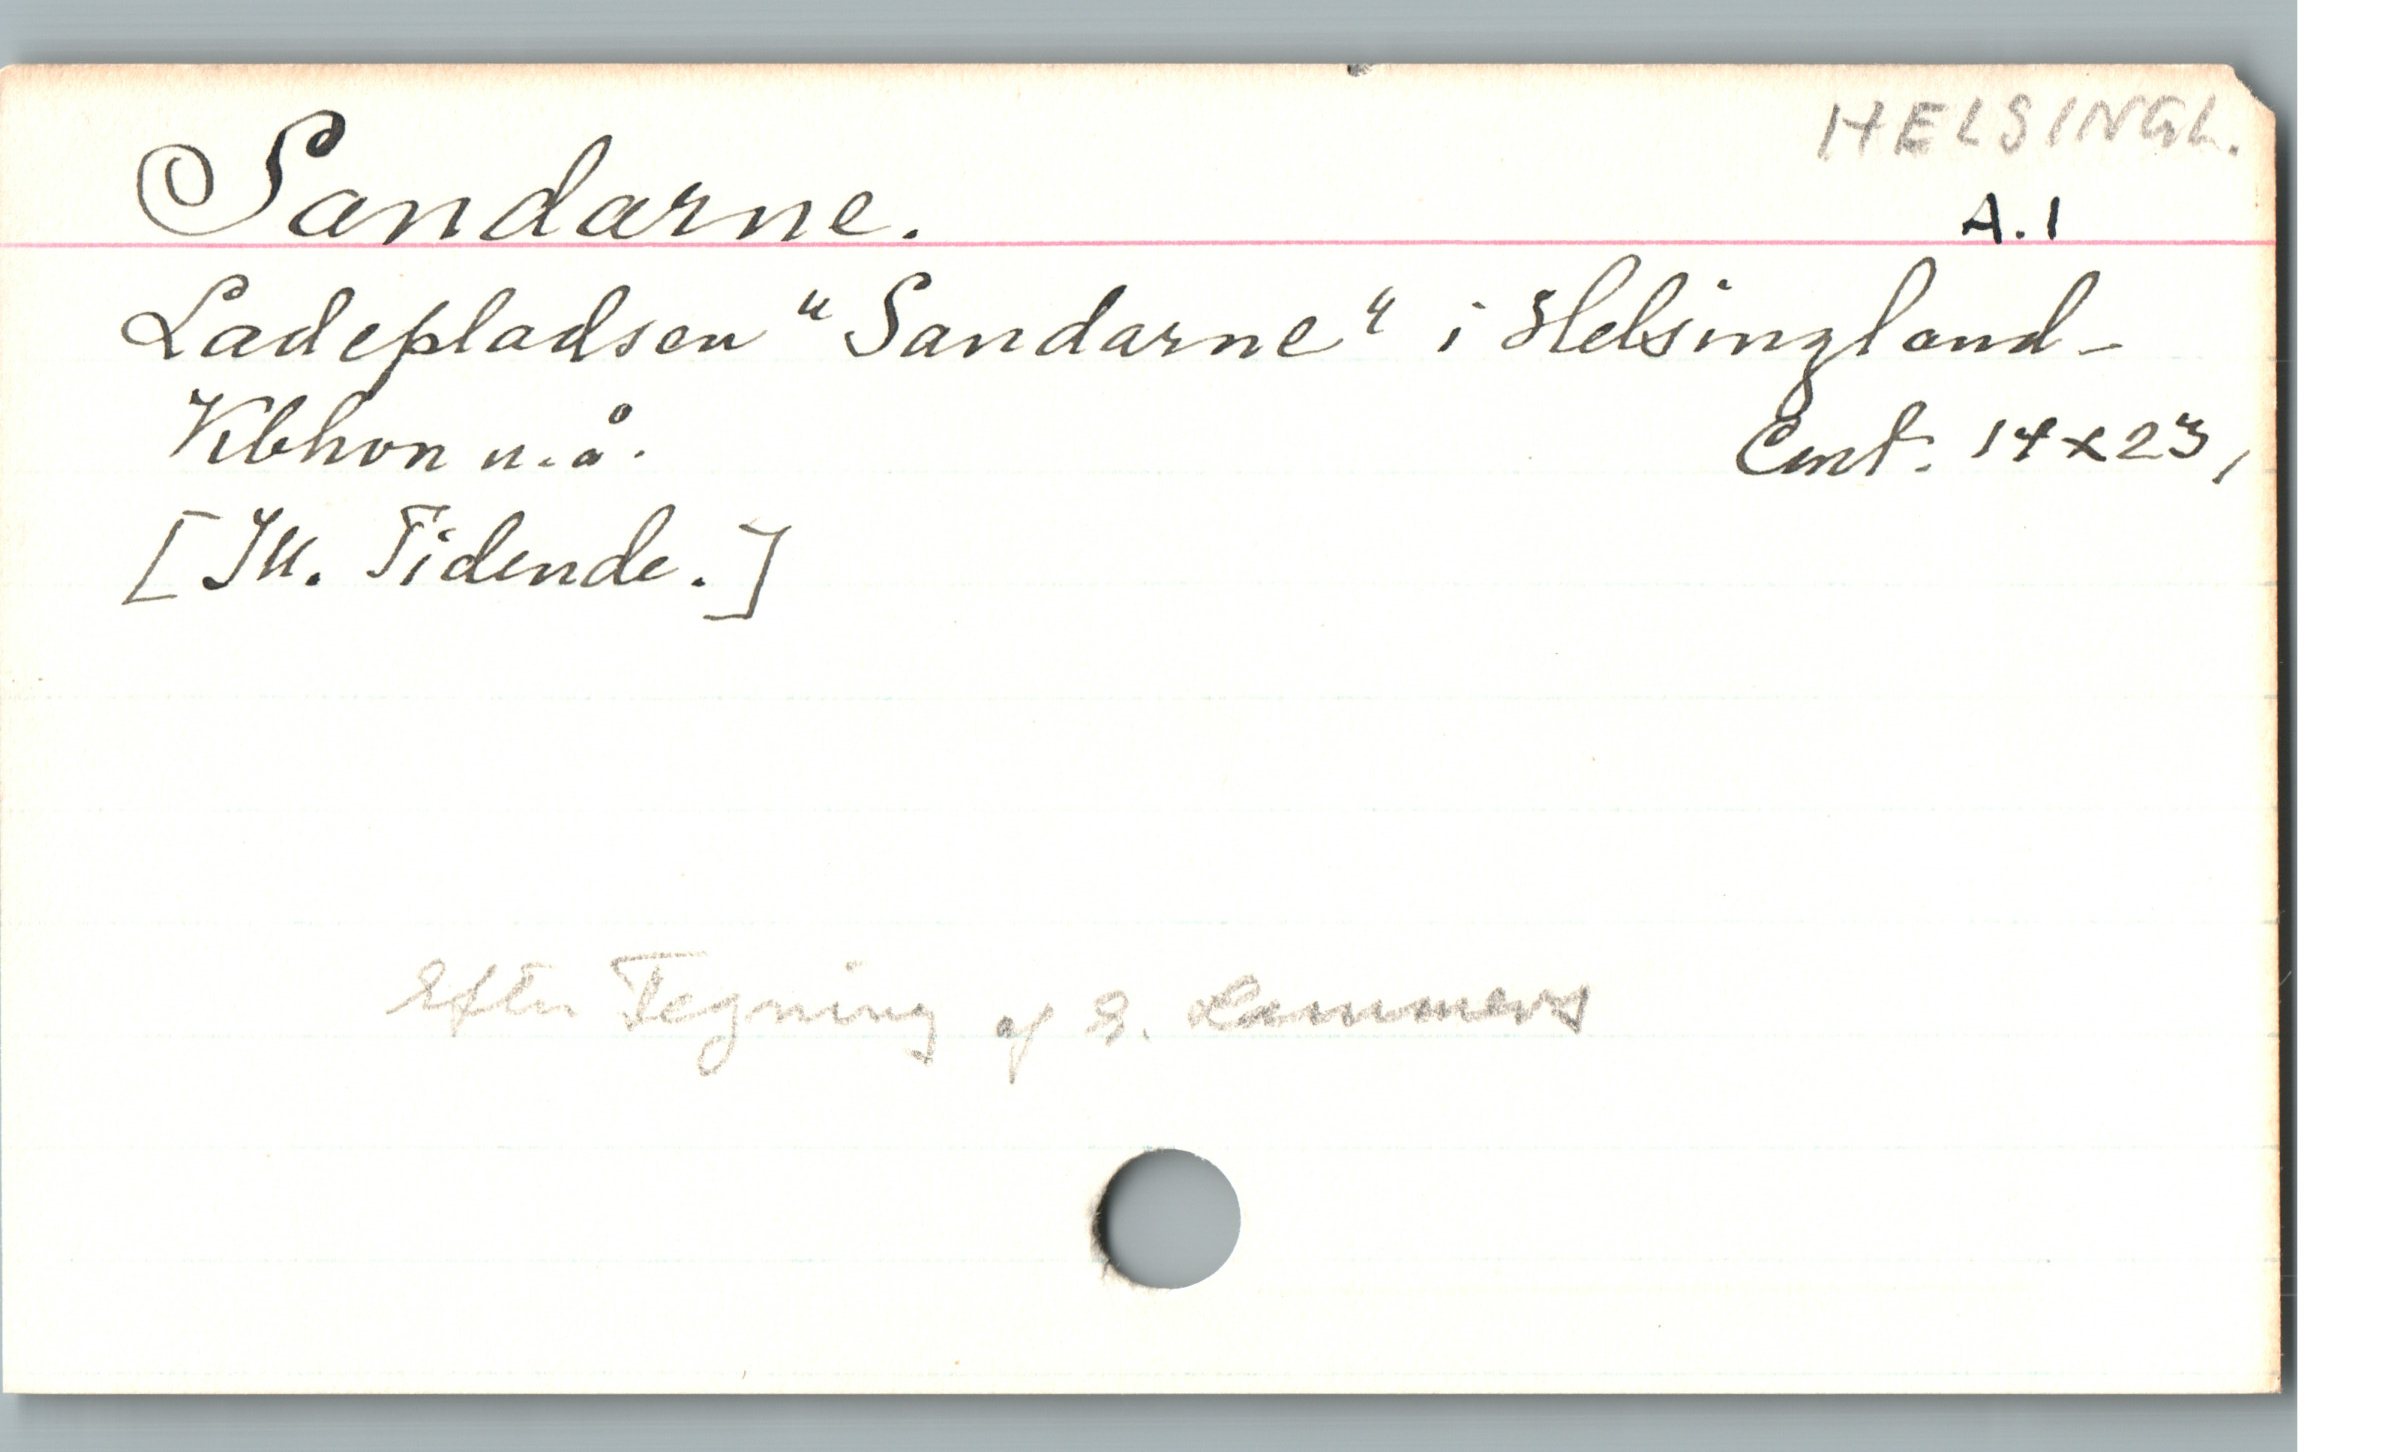 HELSINGL.
Sandarne.
A.1
Ladepladsen "Sandarne" i Helsingland-
Kbhvn u.å. Cent. 14x23,
[Ill. Tidende.]
Efter Tegning af E. Lammers